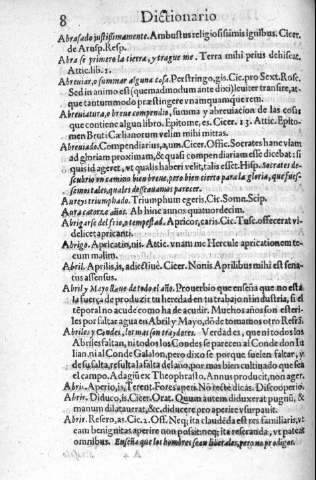 8 Dictionario
Abrasado justissimamente. Ambustus religiosissimis ignibus. Cicer.
de Arusp. Resp.
Abra se primero la tierra, y trague me. Terra mihi prius dehiscat.
Attic. lib. 1.
Abreuiar, o summar alguna cosa. Perstringo, gis. Cic. pro Sext. Rosc.
Sed in animo est (quemadmodum ante dixi) leuiter transire, at-
que tantummodo præstingere vnamquamque rem.
Abreuiatura, o breue compendio, summa y abreuiacion de las cosas
que contiene algun libro. Epitome, es. Cicer. 13. Attic. Epito-
men Bruti Cælianorum velim mihi mittas.
Abreuiado. Compendiarius, a, um. Cicer. Offic. Socrates hanc viam
ad gloriam proximam, & quasi compendiariam esse dicebat: si
quis id ageret, vt qualis haberi velit, talis esset. Hisp. Socrates de-
scubrio vn camino bien breue, pero bien cierto para la gloria, que fues-
semos tales, quales desseauamos parecer.
Aureys triumphado. Triumphum egeris. Cic. Somn. Scip.
Aura catorze años. Ab hinc annos quatuordecim.
Abrigarse del frio, o tempestad. Apricor, caris. Cic. Tusc. offecerat vi-
delicet apricanti.
Abrigo. Apricatio, nis. Attic. vnam me Hercule apricationem te-
cum malim.
Abril. Aprilis, is, adiectiuè. Cicer. Nonis Aprilibus mihi est sena-
tus assensus.
Abril y Mayo llaue de todo el año. Prouerbio que enseña que no está
la fuerça de produzir tu heredad en tu trabajo ni industria, si el
temporal no acude como ha de acudir. Muchos años son esteri-
les por faltar agua en Abril y Mayo, dò de tomamos otro Refrá.
Abriles y Condes, los mas son traydores. Verdad es, que ni todos los
Abriles faltan, ni todos los Condes se parecen al Conde don Iu
lian, ni al Conde Galalon, pero dixo se porque suelen faltar, y
de su falta, resulta la falta del año, por mas bien cultiuado que sea
el campo. Adagiũ ex Theophrasto. Annus producit, non ager.
Abri. Aperio, is, Terent. Fores aperi. No se he dicas. Discooperio.
Abrir. Diduco, is, Cicer. Orat. Quum autem diduxerat pugnũ, &
manum dilatauerat, &c. diducere pro aperire vsurpauit.
Abrir. Resero, as, Cic. 2. Off. Neq; ita claudéda est res familiaris, vt
eam benignitas aperire non possit: neq; ita reseranda, vt pateat
omnibus. Enseña que los hombres sean liberales, pero no prodigos.